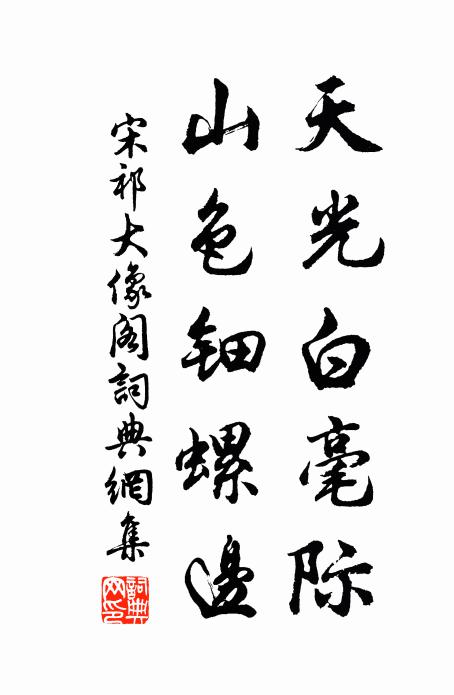 天光白毫际
山色钿螺邊
宋祁大像阁詞典網集